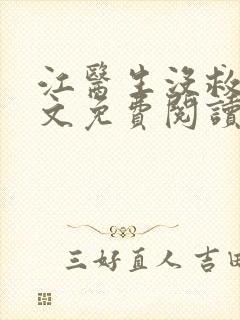 江醫生沒救
文免費閱讀
三好直人 吉田